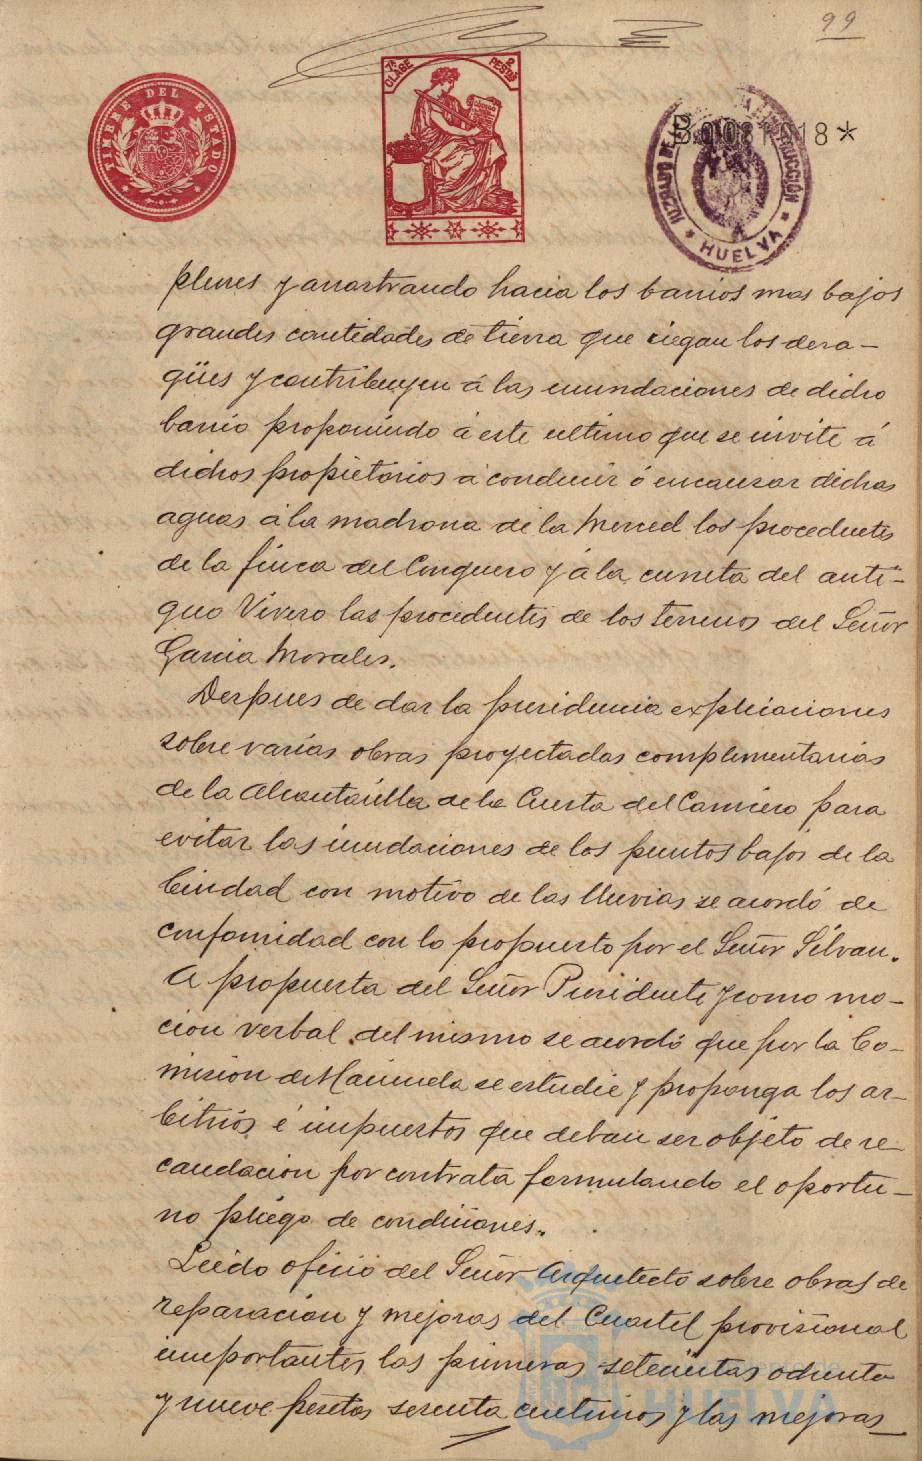 99
TIMBRE DEL ESTADO
7ª CLASE 2 PESETAS
B.0.081.918*
JUZGADO DE INSTRUCCIÓN * HUELVA *
pluses y arrastrando hacia los barrios mas bajos
grandes cantidades de tierra que ciegan los desa-
gües y contribuyen á las inundaciones de dicho
barrio proponiendo á este ultimo que se invite á
dichos propietarios a conducir ó encauzar dichas
aguas á la madrona de la Merced los procedentes
de la finca del Conquero y á la cuneta del anti-
guo Vivero las procedentes de los terrenos del Señor
Garcia Morales.
Despues de dar la presidencia explicaciones
sobre varias obras proyectadas complementarias
de la Alcantarilla de la Cuesta del Carnicero para
evitar las inundaciones de los puntos bajos de la
Ciudad con motivo de las lluvias se acordó de
conformidad con lo propuesto por el Señor Silvan.
A propuesta del Señor Presidente y como mo-
cion verbal del mismo se acordó que por la Co-
mision de Hacienda se estudie y proponga los ar-
bitrios é impuestos que deban ser objeto de re-
caudacion por contrata formulando el oportu-
no pliego de condiciones.
Leido oficio del Señor Arquitecto sobre obras de
reparacion y mejoras del Cuartel provisional
importantes las primeras setecientas ochenta
y nueve pesetas sesenta centimos y las mejoras
Ayuntamiento de
HUELVA